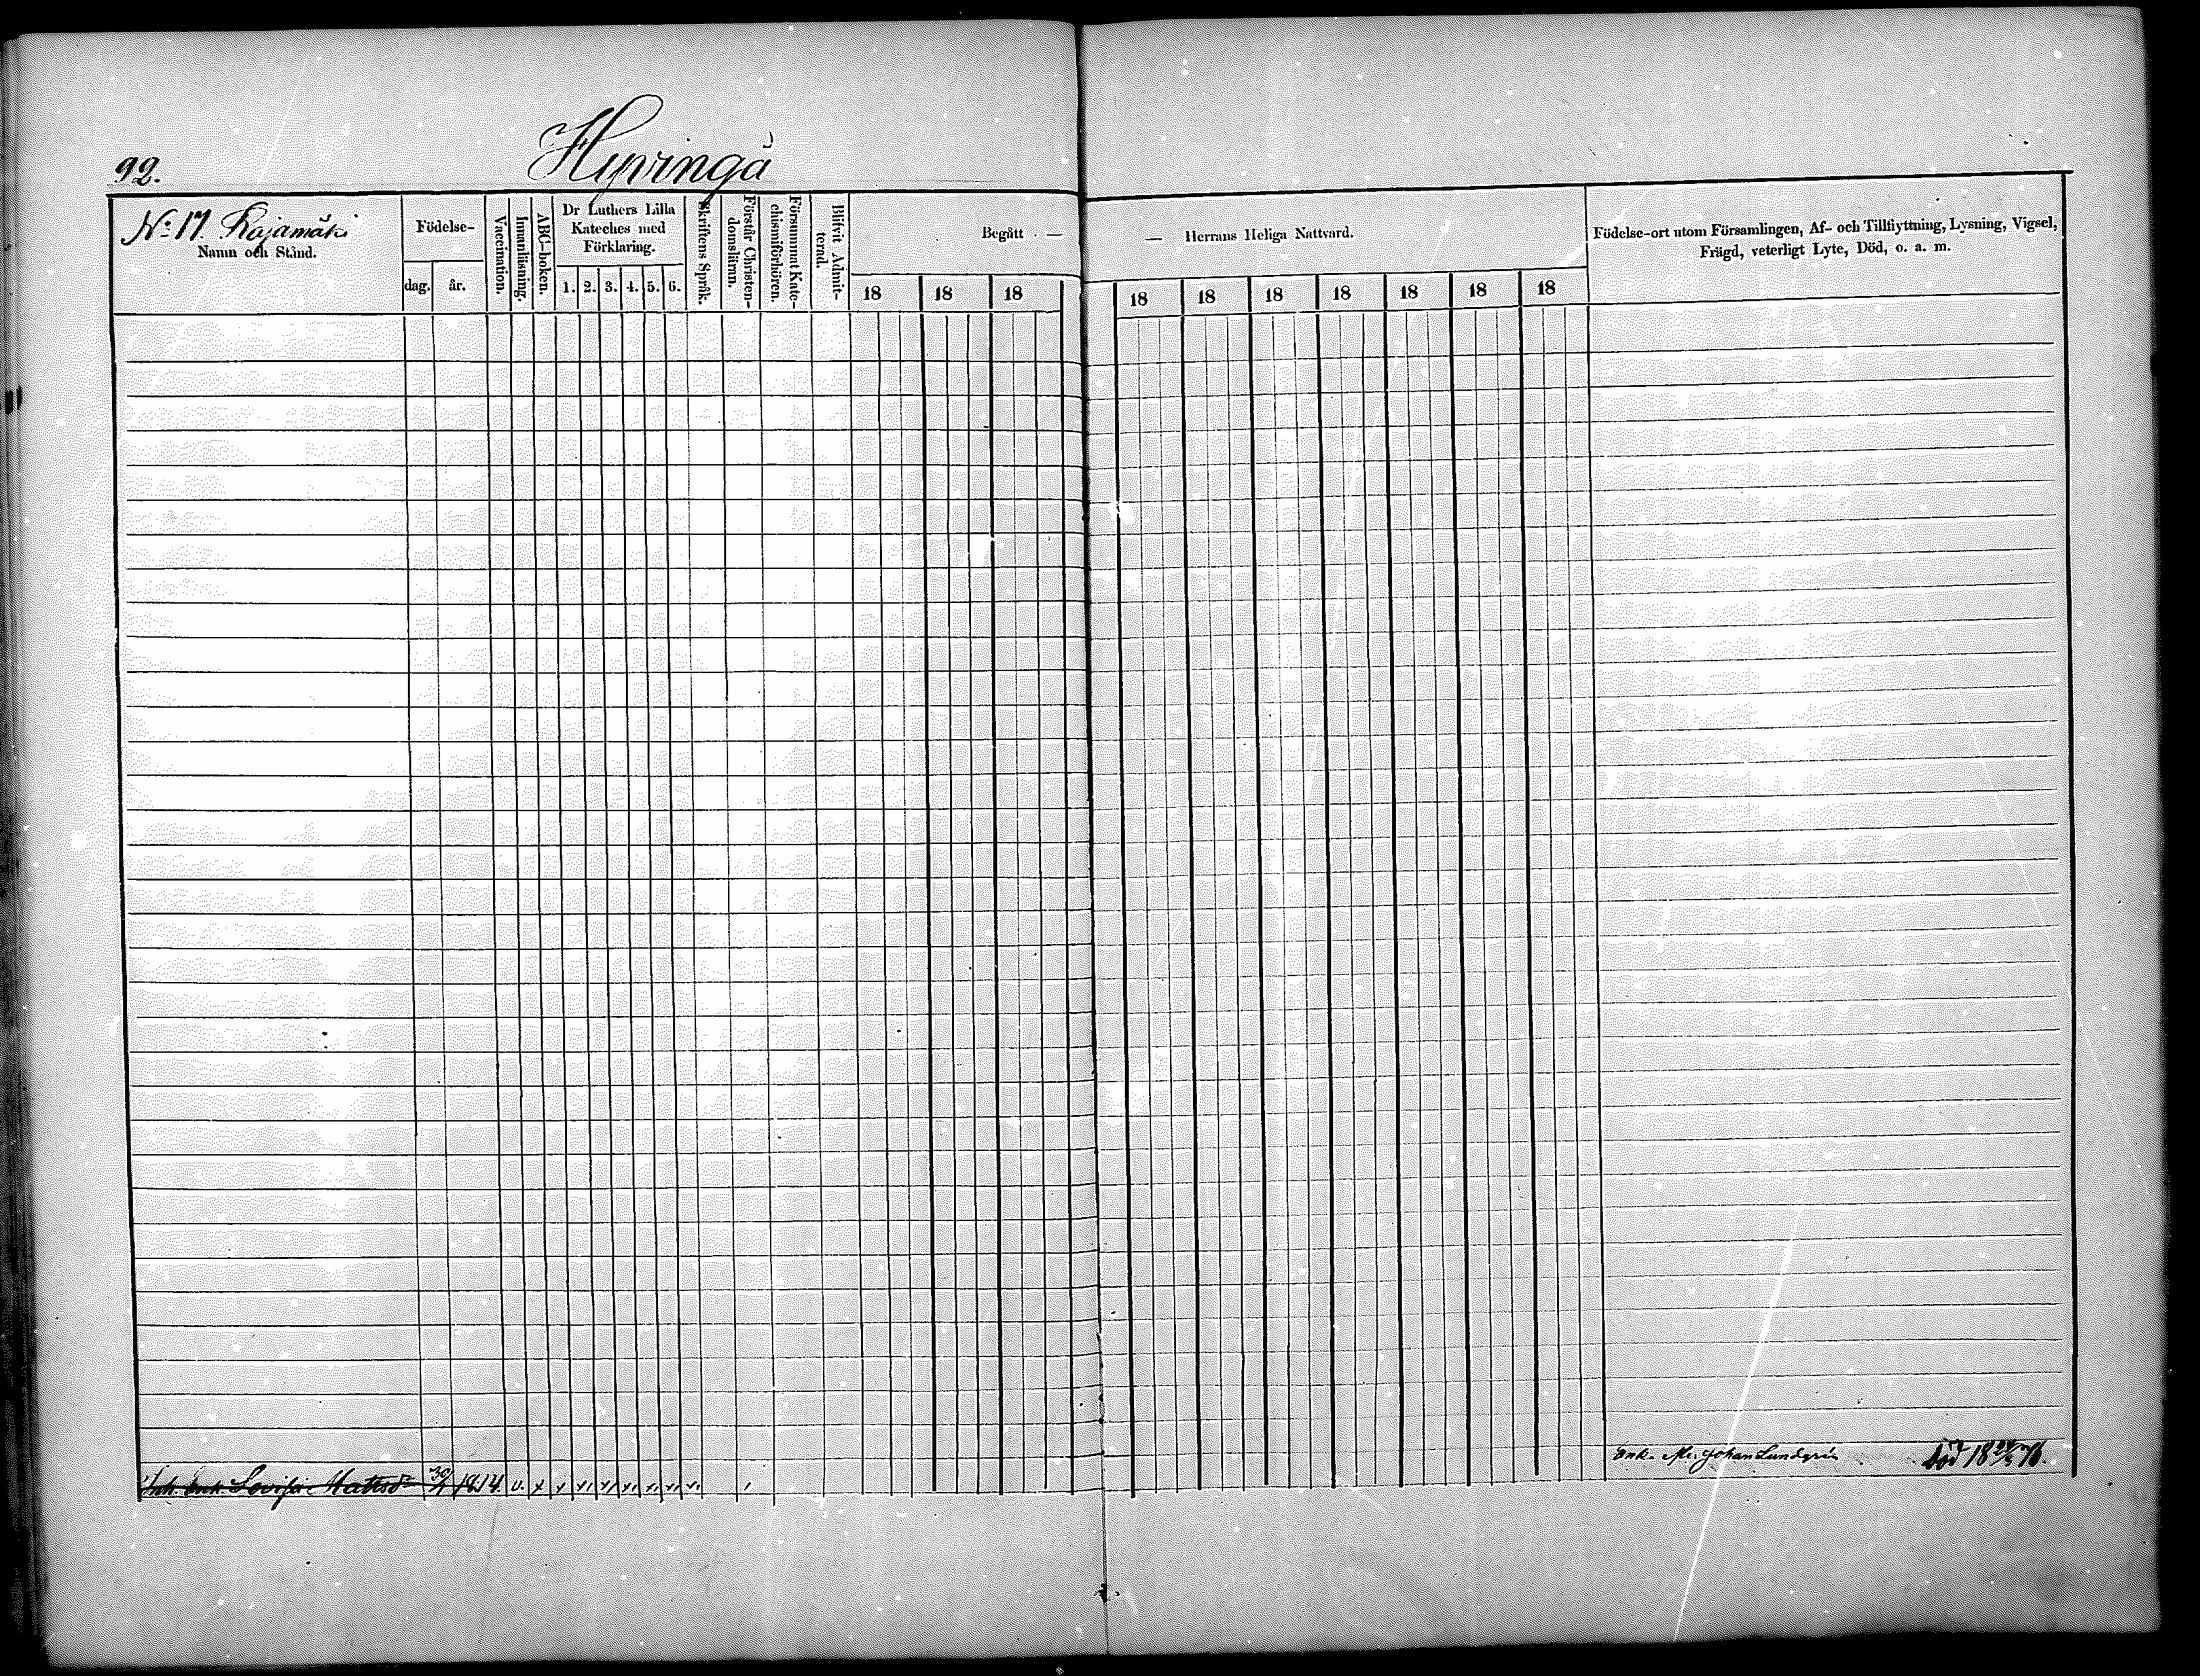 92.
Hyvinge
N:o 17 Rajamäki
Namn och Stånd.
Födelse-
dag.
år.
Vaccination.
Innanläsning.
ABC-boken.
Dr Luthers Lilla
Kateches med
Förklaring.
1. 2. 3. 4. 5. 6.
Skriftens Språk.
Förstår Christen-
domsläran.
Försummat Kate-
chismiförhören.
Blifvit Admit-
terad.
Begått —
18 18 18
— Herrans Heliga Nattvard.
18 18 18 18 18 18 18
Födelse-ort utom Församlingen, Af- och Tillflyttning, Lysning, Vigsel,
Frägd, veterligt Lyte, Död, o. a. m.
Enk. Johan Lundgrén död 18 76.
Enk. Lovisa Mattsdr 1814